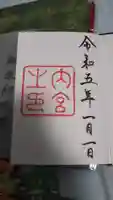 令和五年一月一日
内宮之印